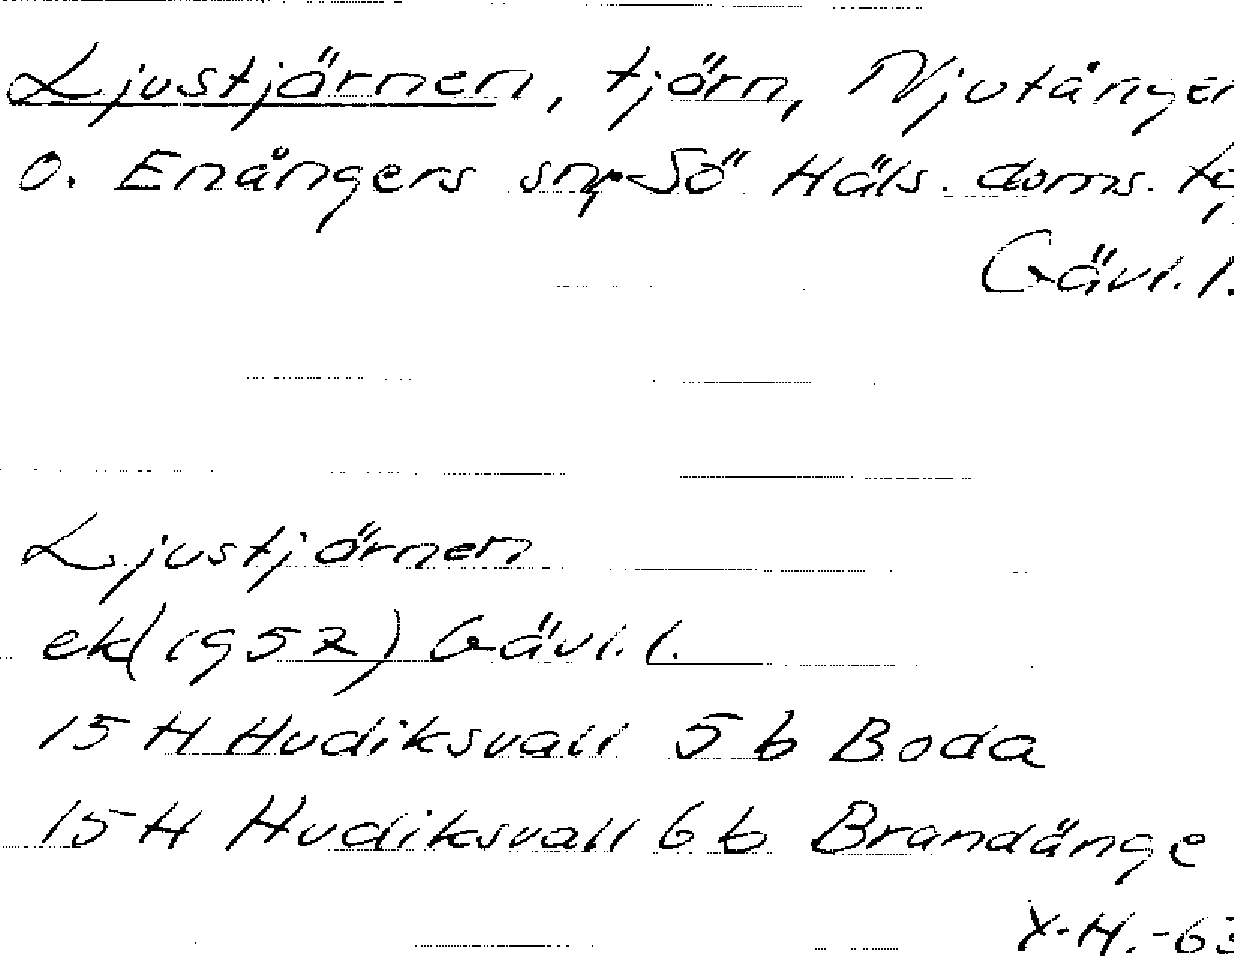 Ljustjärnen, tjärn, Njutånger
o. Enångers snr Sö Häls. doms.
Gävl.l.
Ljustjärnen
ek(1952) Gävl.l.
15 H Hudiksvall 5 b Boda
15 H Hudiksvall 6 b Brandänge
Y.H.-63